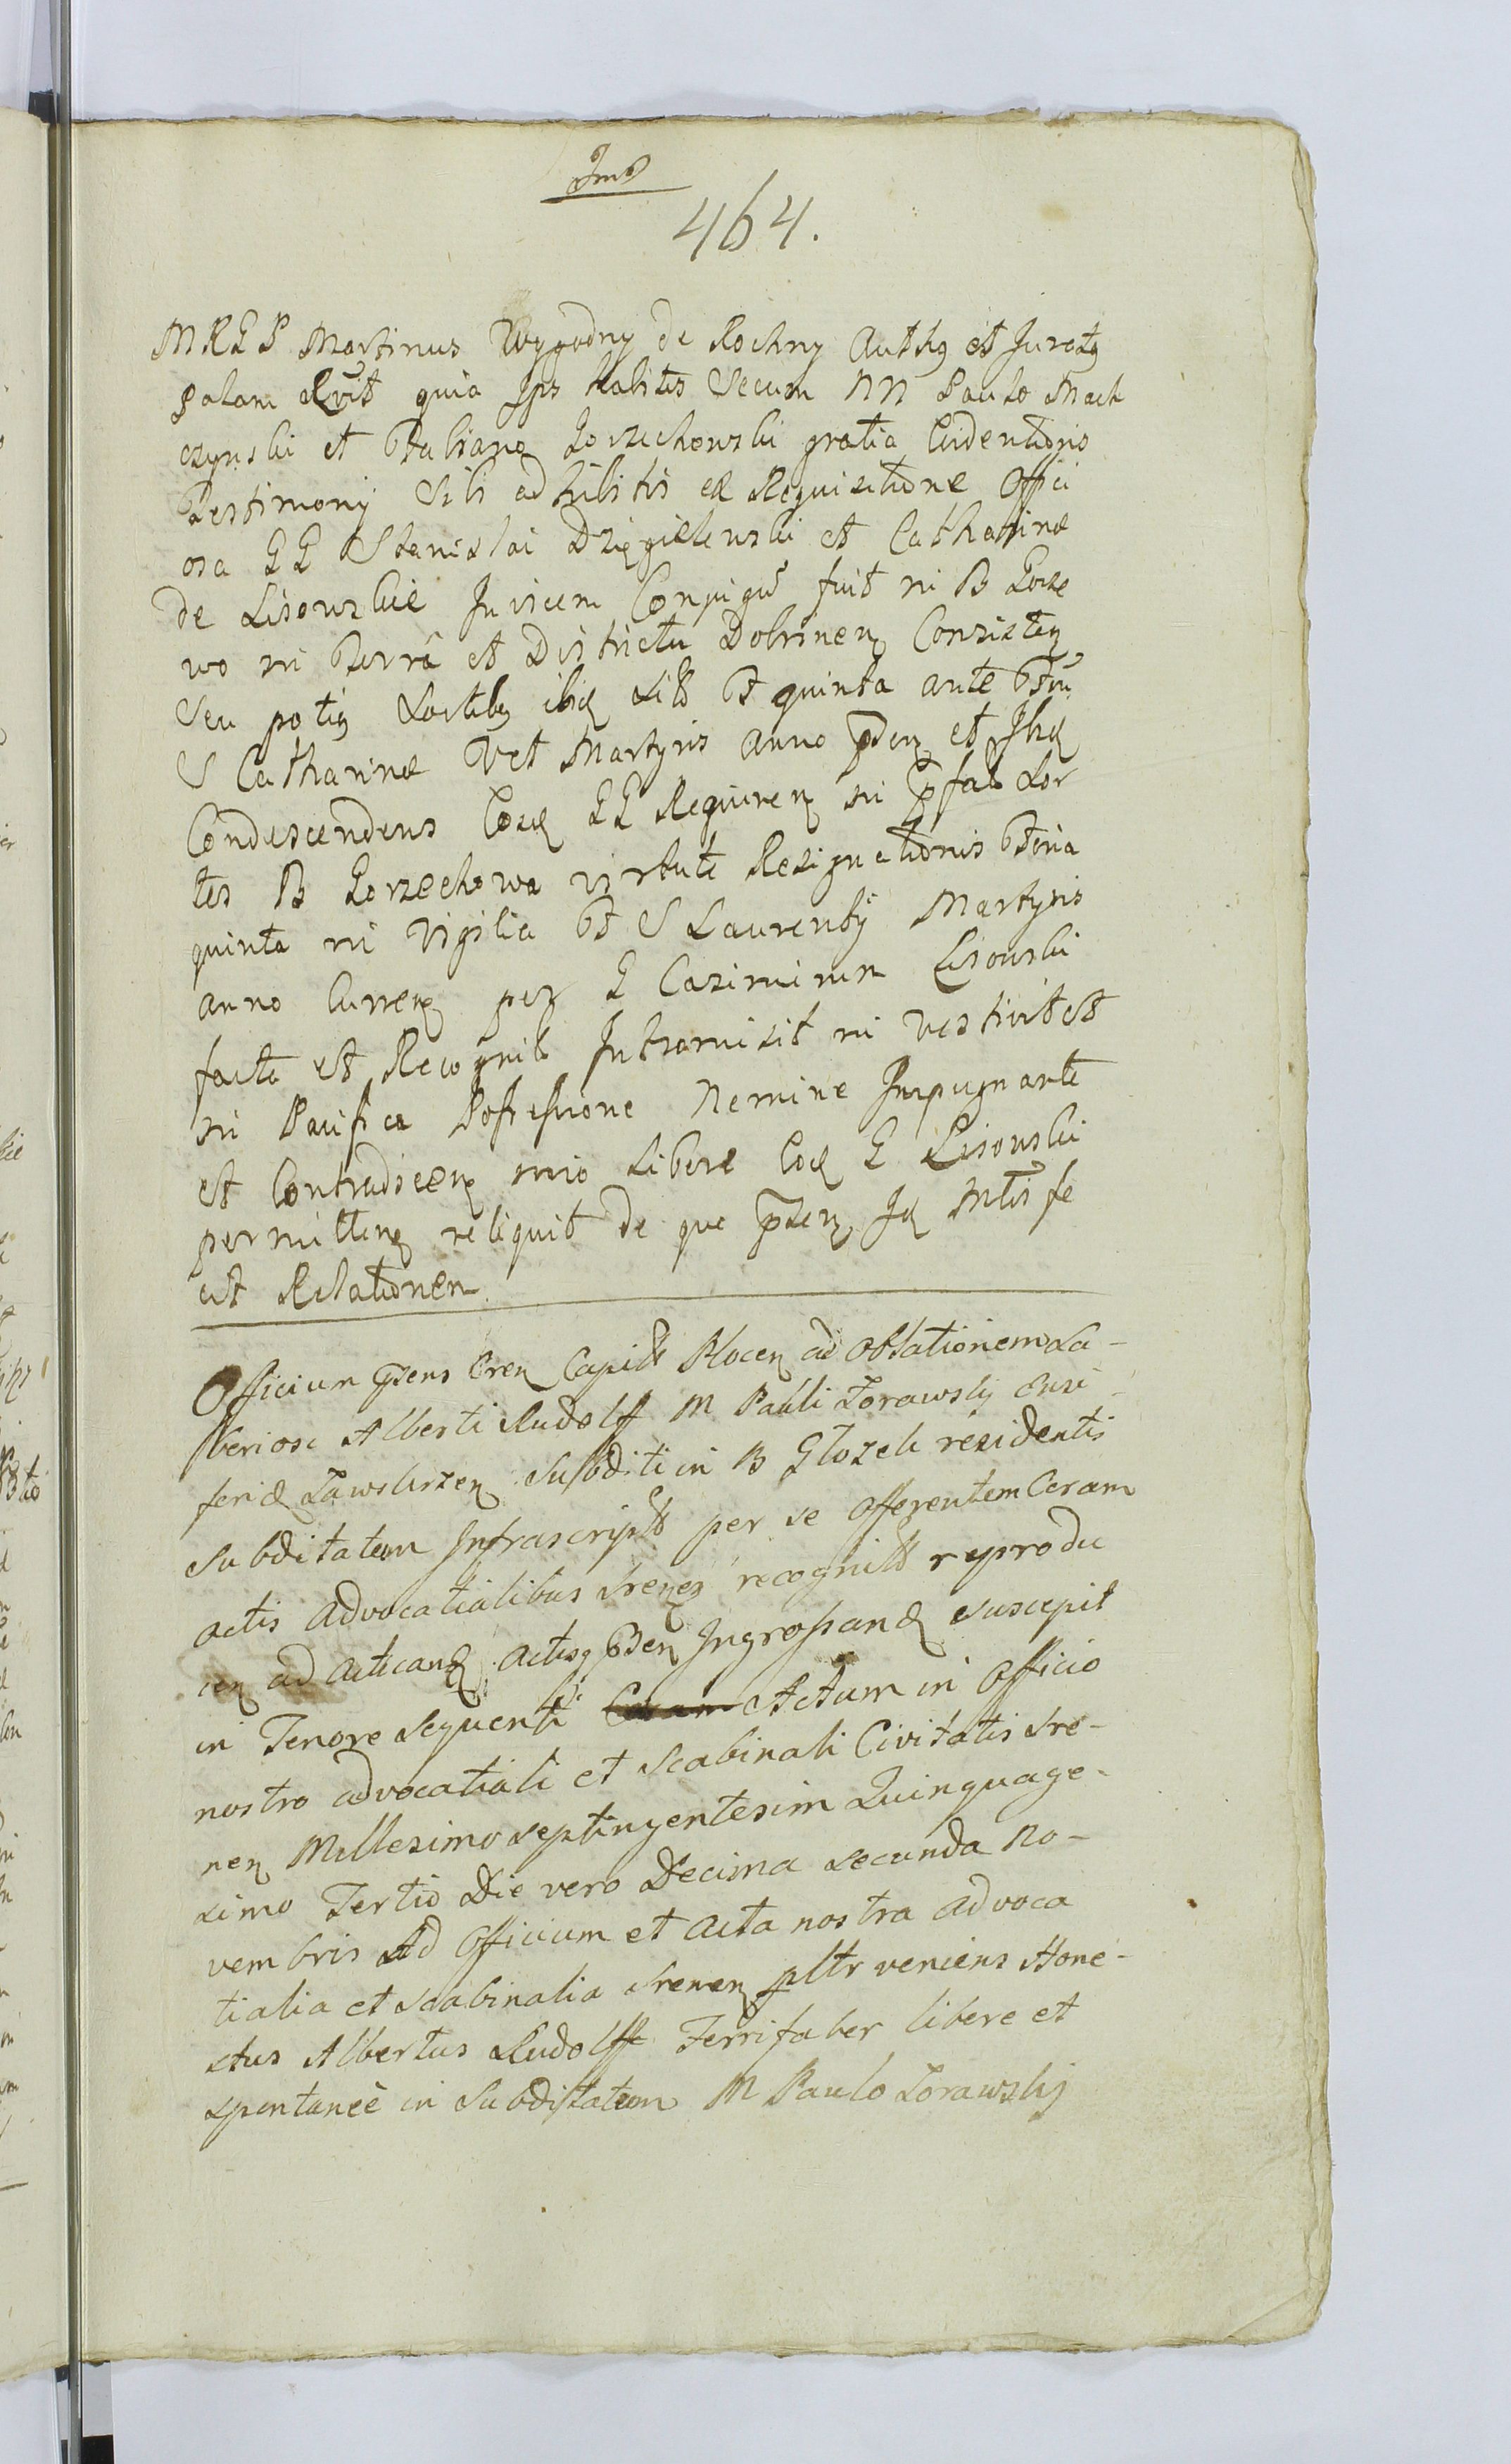 Imo
464.
MRGP Martinus Wygodny de Rochny Authq et Juratq
palam Rvit quia Ips habitis Secum NN Paulo Mach
czynski et Fabiano Gorzechowski gratia Evidentioris
Testimonij Sibi adhibitis ad Requisitione Offici
osa GG Stanislai Dzięgielewski et Catharinæ
de Lisowskie Invicem Conjugū fuit in B Gorze
wo in Terrâ et Districtu Dobrinen Consisten
Seu potiq Sortibq ibid Sit fr quinta ante ftū
S Catharinæ V et Martyris anno pden et Ibid
Condescendens Eosd GG Requiren in pfat Sor
tes B Gorzechowa virtute Resignationis feria
quinta in Vigilia ft S Laurentij Martyris
anno Curren per G Casimirum Lisowski
facta et Recognit Intromisit in vestivit et
in Pacifica Possessione Nemine Impugnante
et Contradicen imo Libere Eod G Lisowski
permitten reliquit de quo psen Id Mtris fe
cit Relationem.
Officium psens Cren Capitlt Plocen ad Oblationem La-
boriosi Alberti Rudolff M Pauli Zorawskj Ensi
feri Zawskrzen Subditi in B Głozek residentis
Subditatem Infrascriptt per se Offerentem Ceram
actis Advocatialibus Srenen recognitt reprodu
cen ad acticand, Actisq psen Ingrossand suscepit
in Tenore sequenti Actum in Officio
nostro advocatiali et Scabinali Civitatis Sre-
nen Millesimo septingentesim Quinquage-
simo Tertio Die vero Decima secunda No-
vembris Ad Officium et Acta nostra advoca
tialia et Scabinalia Srenen pltr veniens Hone-
stus Albertus Rudolff Ferrifaber libere et
spontaneè in Subditatem M Paulo Zorawskj